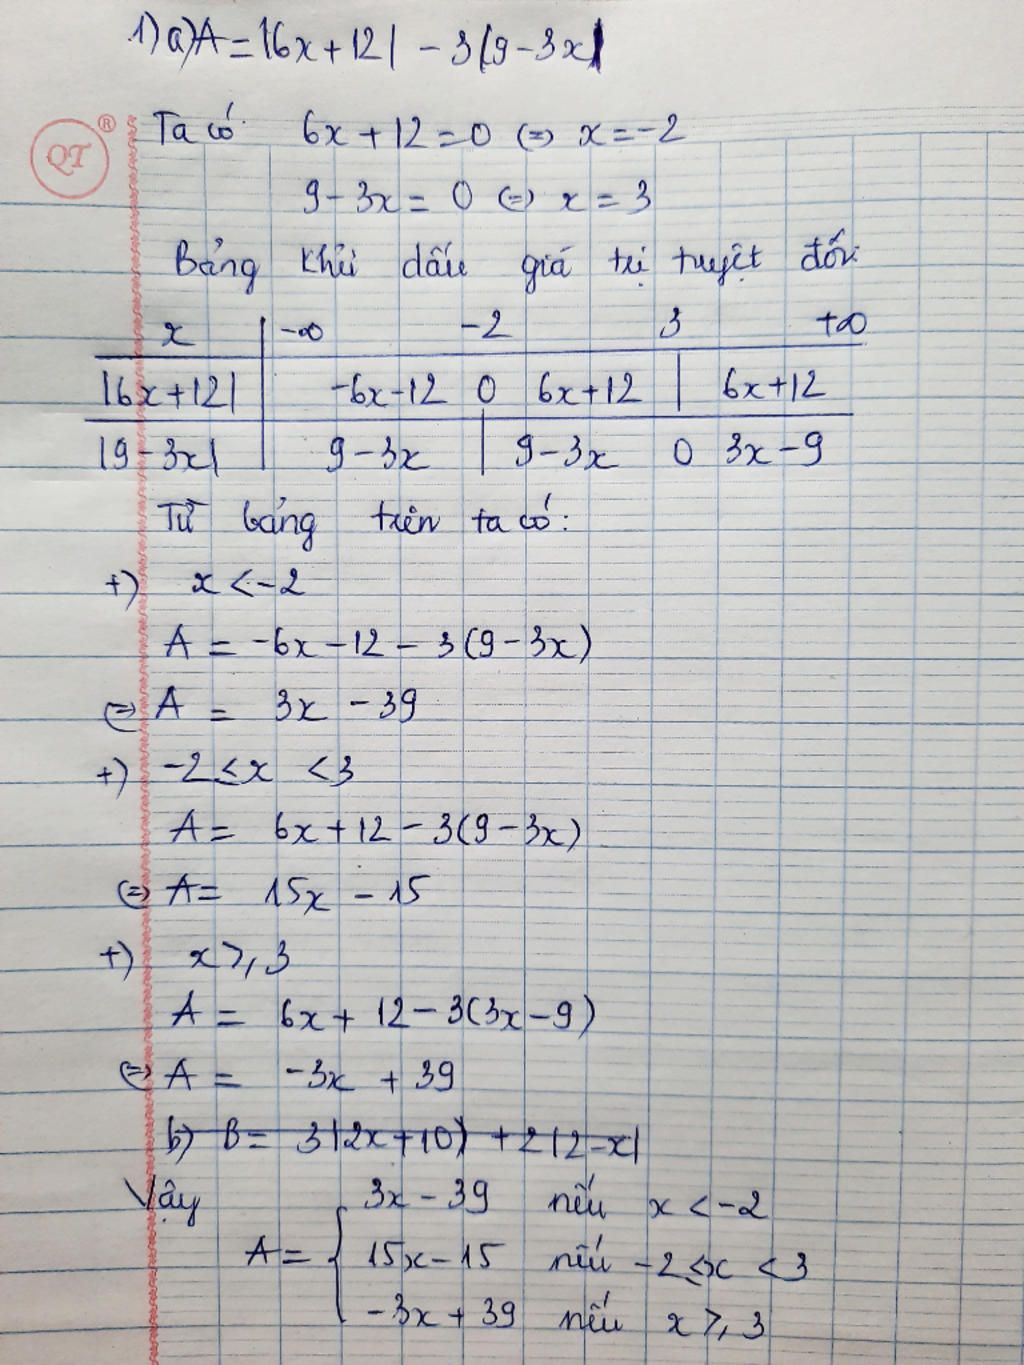 1) a) A = |6x + 12| - 3|9 - 3x|
QT ®
Ta có 6x + 12 = 0 (=) x = -2
9 - 3x = 0 (=) x = 3
Bảng khử dấu giá trị tuyệt đối:
x | -∞ -2 3 +∞
|6x + 12| | -6x - 12 0 6x + 12 | 6x + 12
|9 - 3x| | 9 - 3x | 9 - 3x 0 3x - 9
Từ bảng trên ta có:
+) x < -2
A = -6x - 12 - 3(9 - 3x)
(=) A = 3x - 39
+) -2 ≤ x < 3
A = 6x + 12 - 3(9 - 3x)
(=) A = 15x - 15
+) x ≥ 3
A = 6x + 12 - 3(3x - 9)
(=) A = -3x + 39
b) B = 3|2x + 10| + 2|2 - x|
Vậy 3x - 39 nếu x < -2
A = { 15x - 15 nếu -2 ≤ x < 3
-3x + 39 nếu x ≥ 3